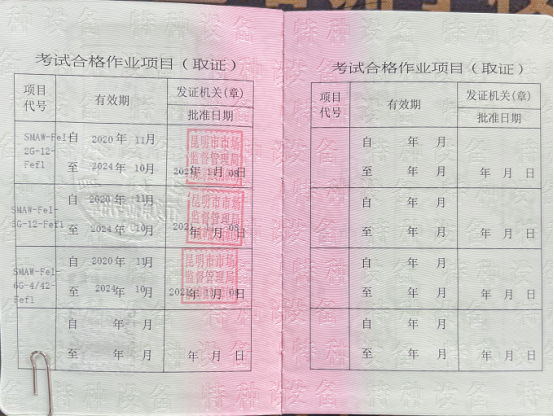 考试合格作业项目（取证）
项目代号
有效期
发证机关(章)
批准日期
SMAW-Fe1-
2G-12-
Fef1
自 2020年 11月
至 2024年 10月
昆明市市场
监督管理局
年 月 08日
SMAW-Fe1-
3G-12-Fef1
自 2020年 11月
至 2024年 10月
昆明市市场
监督管理局
年 月 日
SMAW-Fe1-
6G-4/42-
Fef1
自 2020年 11月
至 2024年 10月
昆明市市场
监督管理局
年 月 08日
自 年 月
至 年 月
年 月 日
考试合格作业项目（取证）
项目代号
有效期
发证机关(章)
批准日期
自 年 月
至 年 月
年 月 日
自 年 月
至 年 月
年 月 日
自 年 月
至 年 月
年 月 日
自 年 月
至 年 月
年 月 日